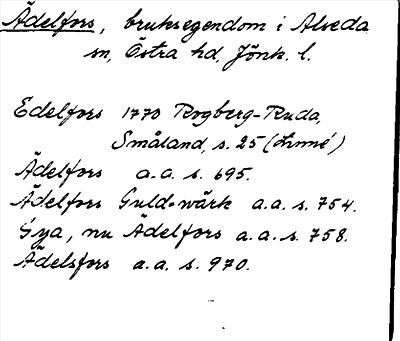 Ädelfors, bruksegendom i Alseda
sn, Östra hd, Jönk. l.
Edelfors 1770 Rogberg-Ruda,
Småland, s. 25 (Linné)
Ädelfors a.a. s. 695.
Ädelfors Guld-wärk a.a. s. 754.
Sya, nu Ädelfors a.a. s. 758.
Ädelsfors a.a. s. 970.